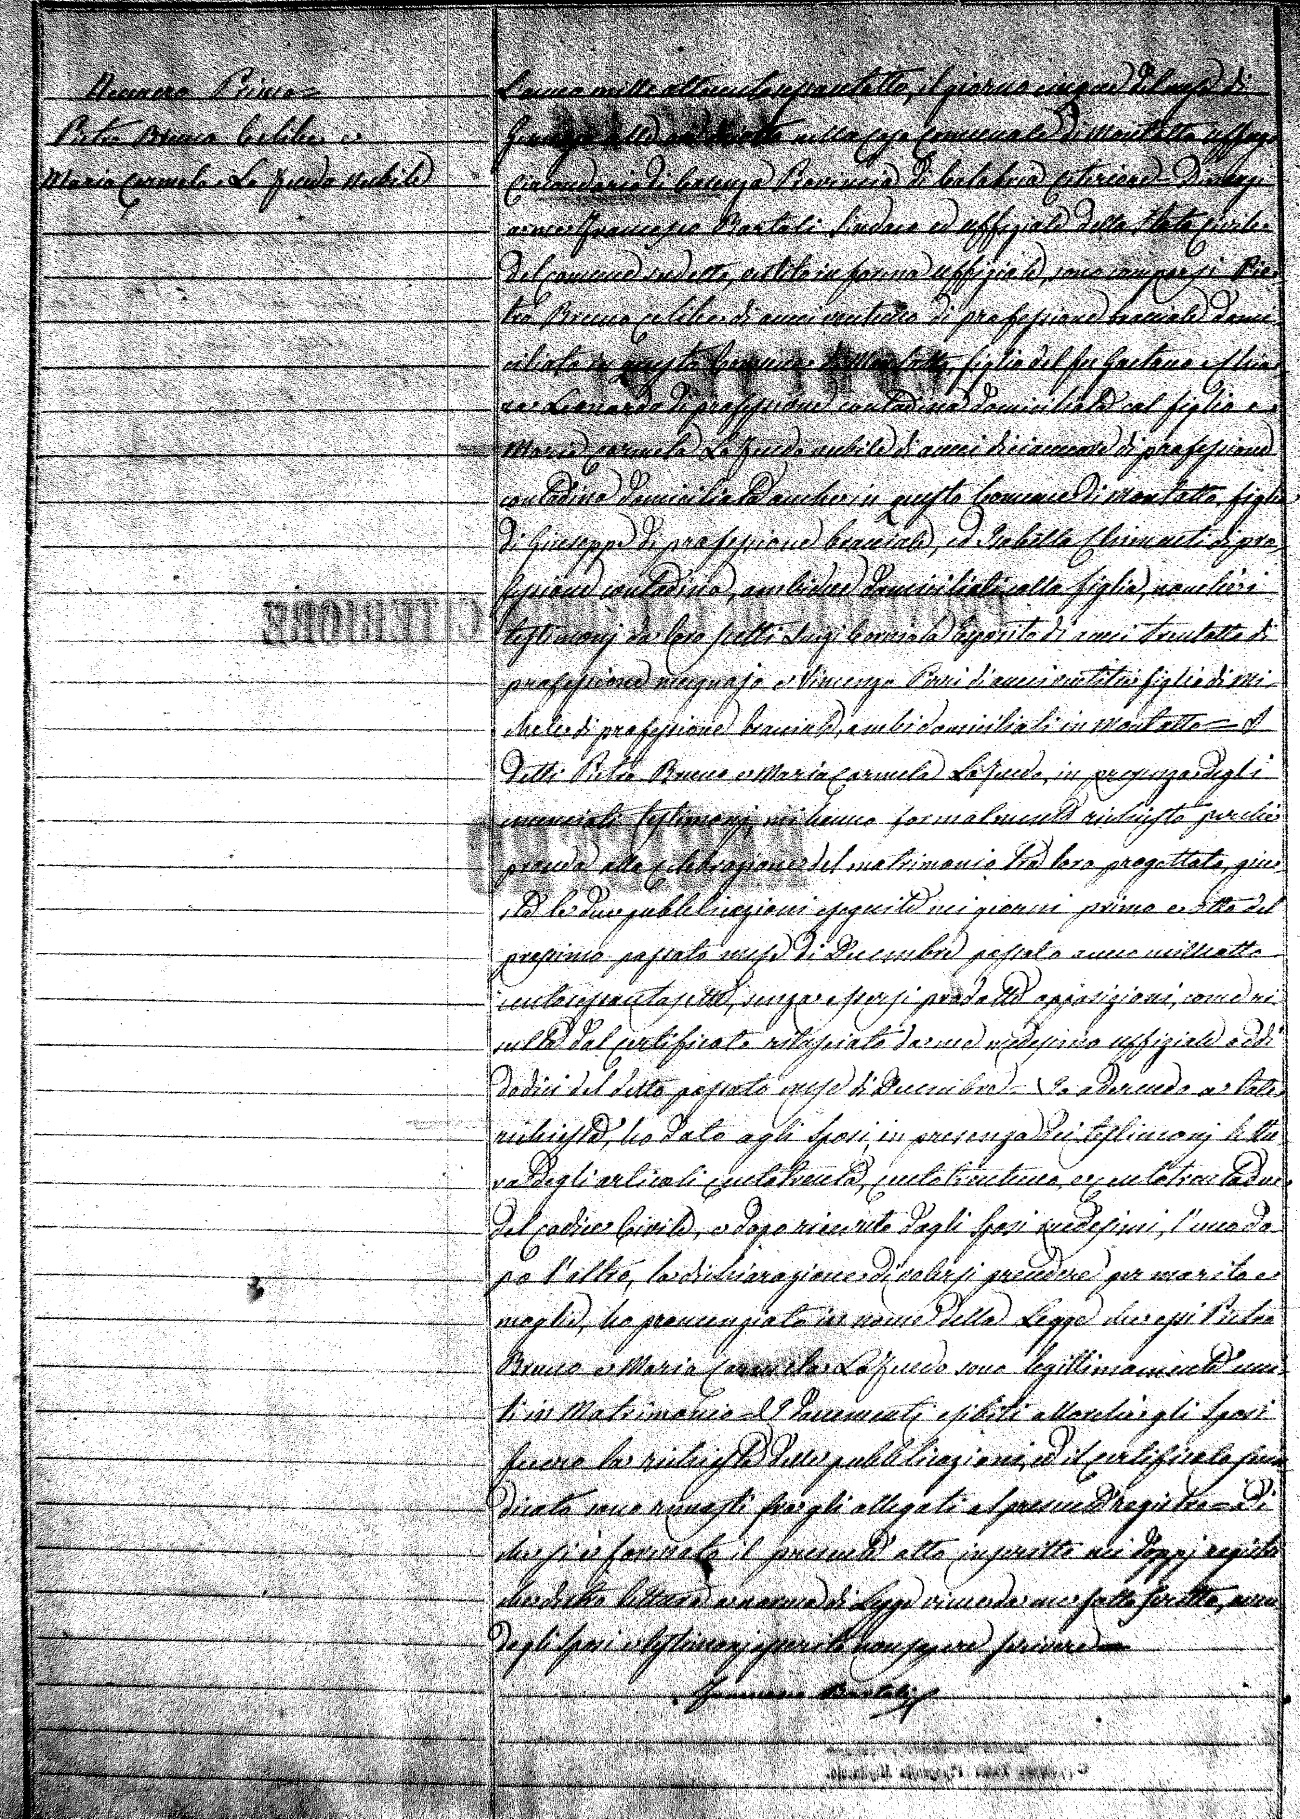 Numero Primo=
Pietro Bruno Celibe e
Maria Carmela Lo Feudo Nubile
L'anno mille ottocento sessantotto, il giorno cinque del mese di
Gennajo nella casa Comunale di Montalto Uffugo
Circondario di Cosenza Provincia di Calabria Citeriore= Dinanzi
a me Francesco Bartoli Sindaco ed uffiziale dello Stato Civile
del comune sudetto, vestito in forma uffiziale, sono comparsi Pie-
tro Bruno celibe di anni ventuno di professione bracciale domi-
ciliato in questo Comune di Montalto, figlio del fu Gaetano e
Leonardo di professione contadina domiciliata col figlio e
Maria Carmela Lo Feudo nubile di anni diciannove di professione
contadina domiciliata anche in questo Comune di Montalto, figlia
di Giuseppe di professione bracciale, ed Isabella di pro-
fessione contadina, ambidue domiciliati colla figlia, nonchè i
testimonj da loro scelti Luigi Esposito di anni trentotto di
professione e Vincenzo di anni figlio di Mi-
chele di professione bracciale, ambi domiciliati in Montalto= I
detti Pietro Bruno e Maria Carmela Lo Feudo, in presenza degli
enunciati testimonj, mi hanno formalmente richiesto perchè
proceda alla celebrazione del matrimonio tra loro progettato, giu-
sta le due pubblicazioni eseguite nei giorni primo e otto del
prossimo passato mese di Decembre passato anno mille otto
cento sessantasette, senza essersi prodotte opposizioni, come ri-
sulta dal certificato rilasciato da me medesimo uffiziale addi
dodici del detto passato mese di Decembre= Io aderendo a tale
richiesta, ho dato agli sposi, in presenza dei testimonj lettu-
ra degli articoli centotrenta, centotrentuno, e centotrentadue
del codice Civile, e dopo ricevuto dagli sposi medesimi, l'uno do-
po l'altro, la dichiarazione di volersi prendere per marito e
moglie, ho pronunziato in nome della Legge che essi Pietro
Bruno e Maria Carmela Lo Feudo sono legittimamente uni-
ti in Matrimonio= I documenti esibiti allorchè gli sposi
fecero la richiesta delle pubblicazioni, ed il certificato
sono rimasti fra gli allegati al presente registro= Di
che si è formato il presente atto inscritto nei doppj registri
che dietro lettura a norma di Legge viene da me sottoscritto, avendo
degli sposi e testimonj asserito non sapere scrivere=
Francesco Bartoli
CITERIORE